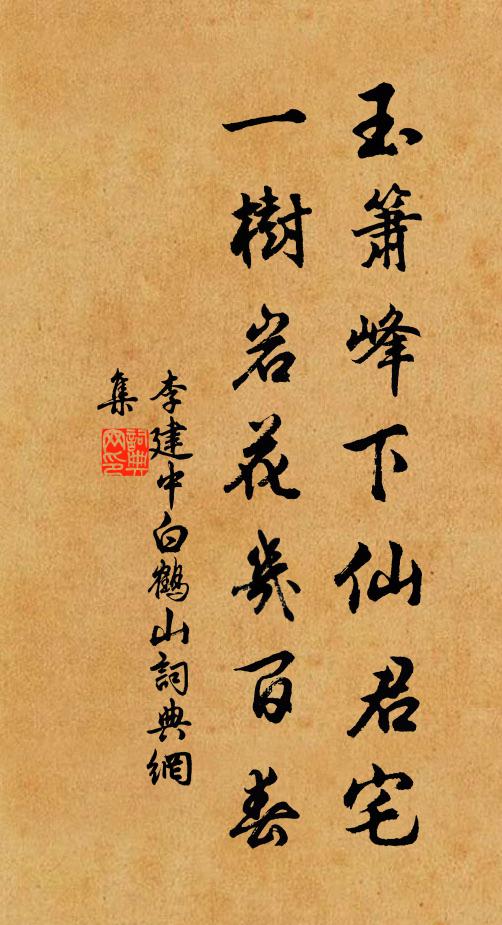 玉簫峰下仙君宅
一樹岩花幾百春
李建中白鶴山詞典網
集
詞典
网印